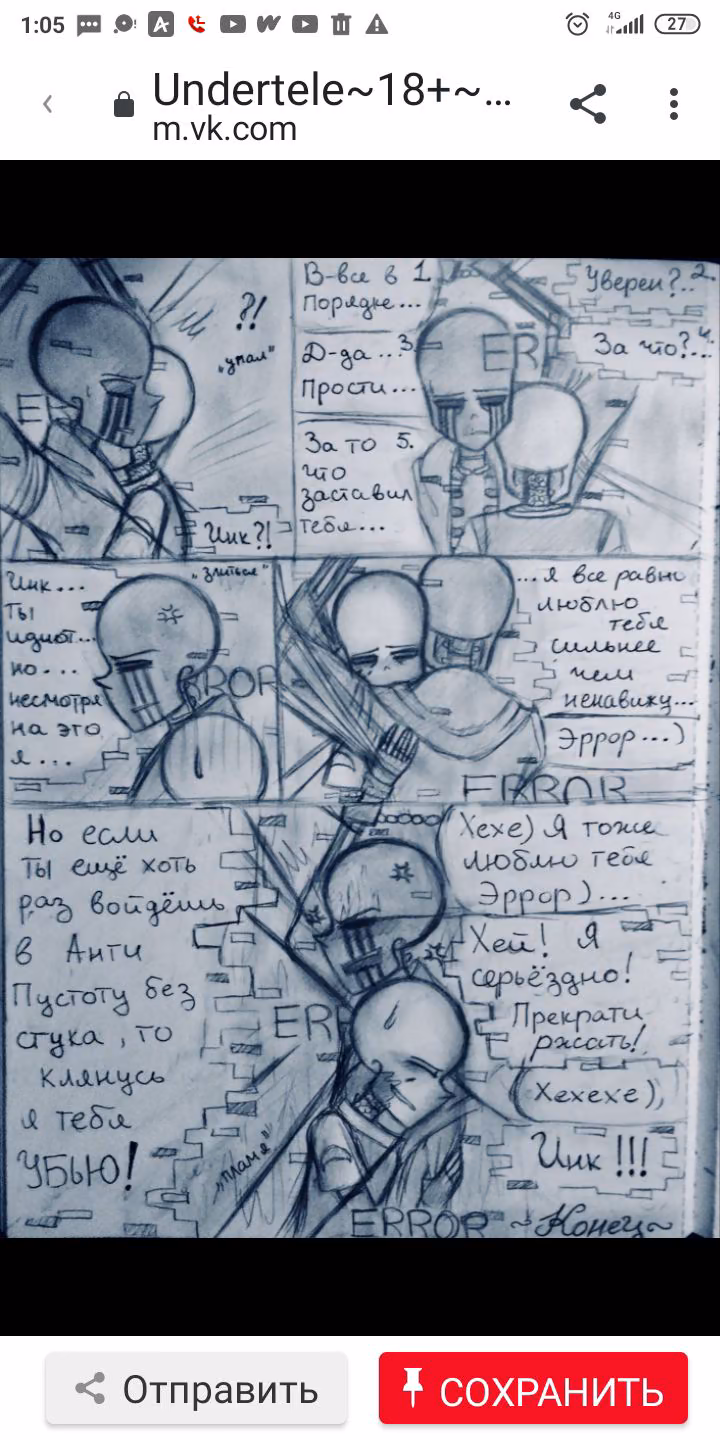 1:05
4G
27
Undertele~18+~...
m.vk.com
?!
„упал"
Инк?!
В-все в 1.
порядке...
Уверен?.. 2.
Д-да... 3.
Прости...
За что?... 4.
За то 5.
что
заставил
тебя...
ER
Инк...
ты
идиот...
но...
несмотря
на это
я...
„злиться"
RROR
...Я все равно
люблю
тебя
сильнее
чем
ненавижу...
Эррор...)
ERROR
Но если
ты ещё хоть
раз войдёшь
в Анти
Пустоту без
стука, то
клянусь
я тебя
УБЬЮ!
Хехе) Я тоже
люблю тебя
Эррор)...
Хей! Я
серьёздно!
Прекрати
ржать!
(Хехехе),
Инк!!!
ERR
„пламя"
ERROR
~Конец~
Отправить
СОХРАНИТЬ